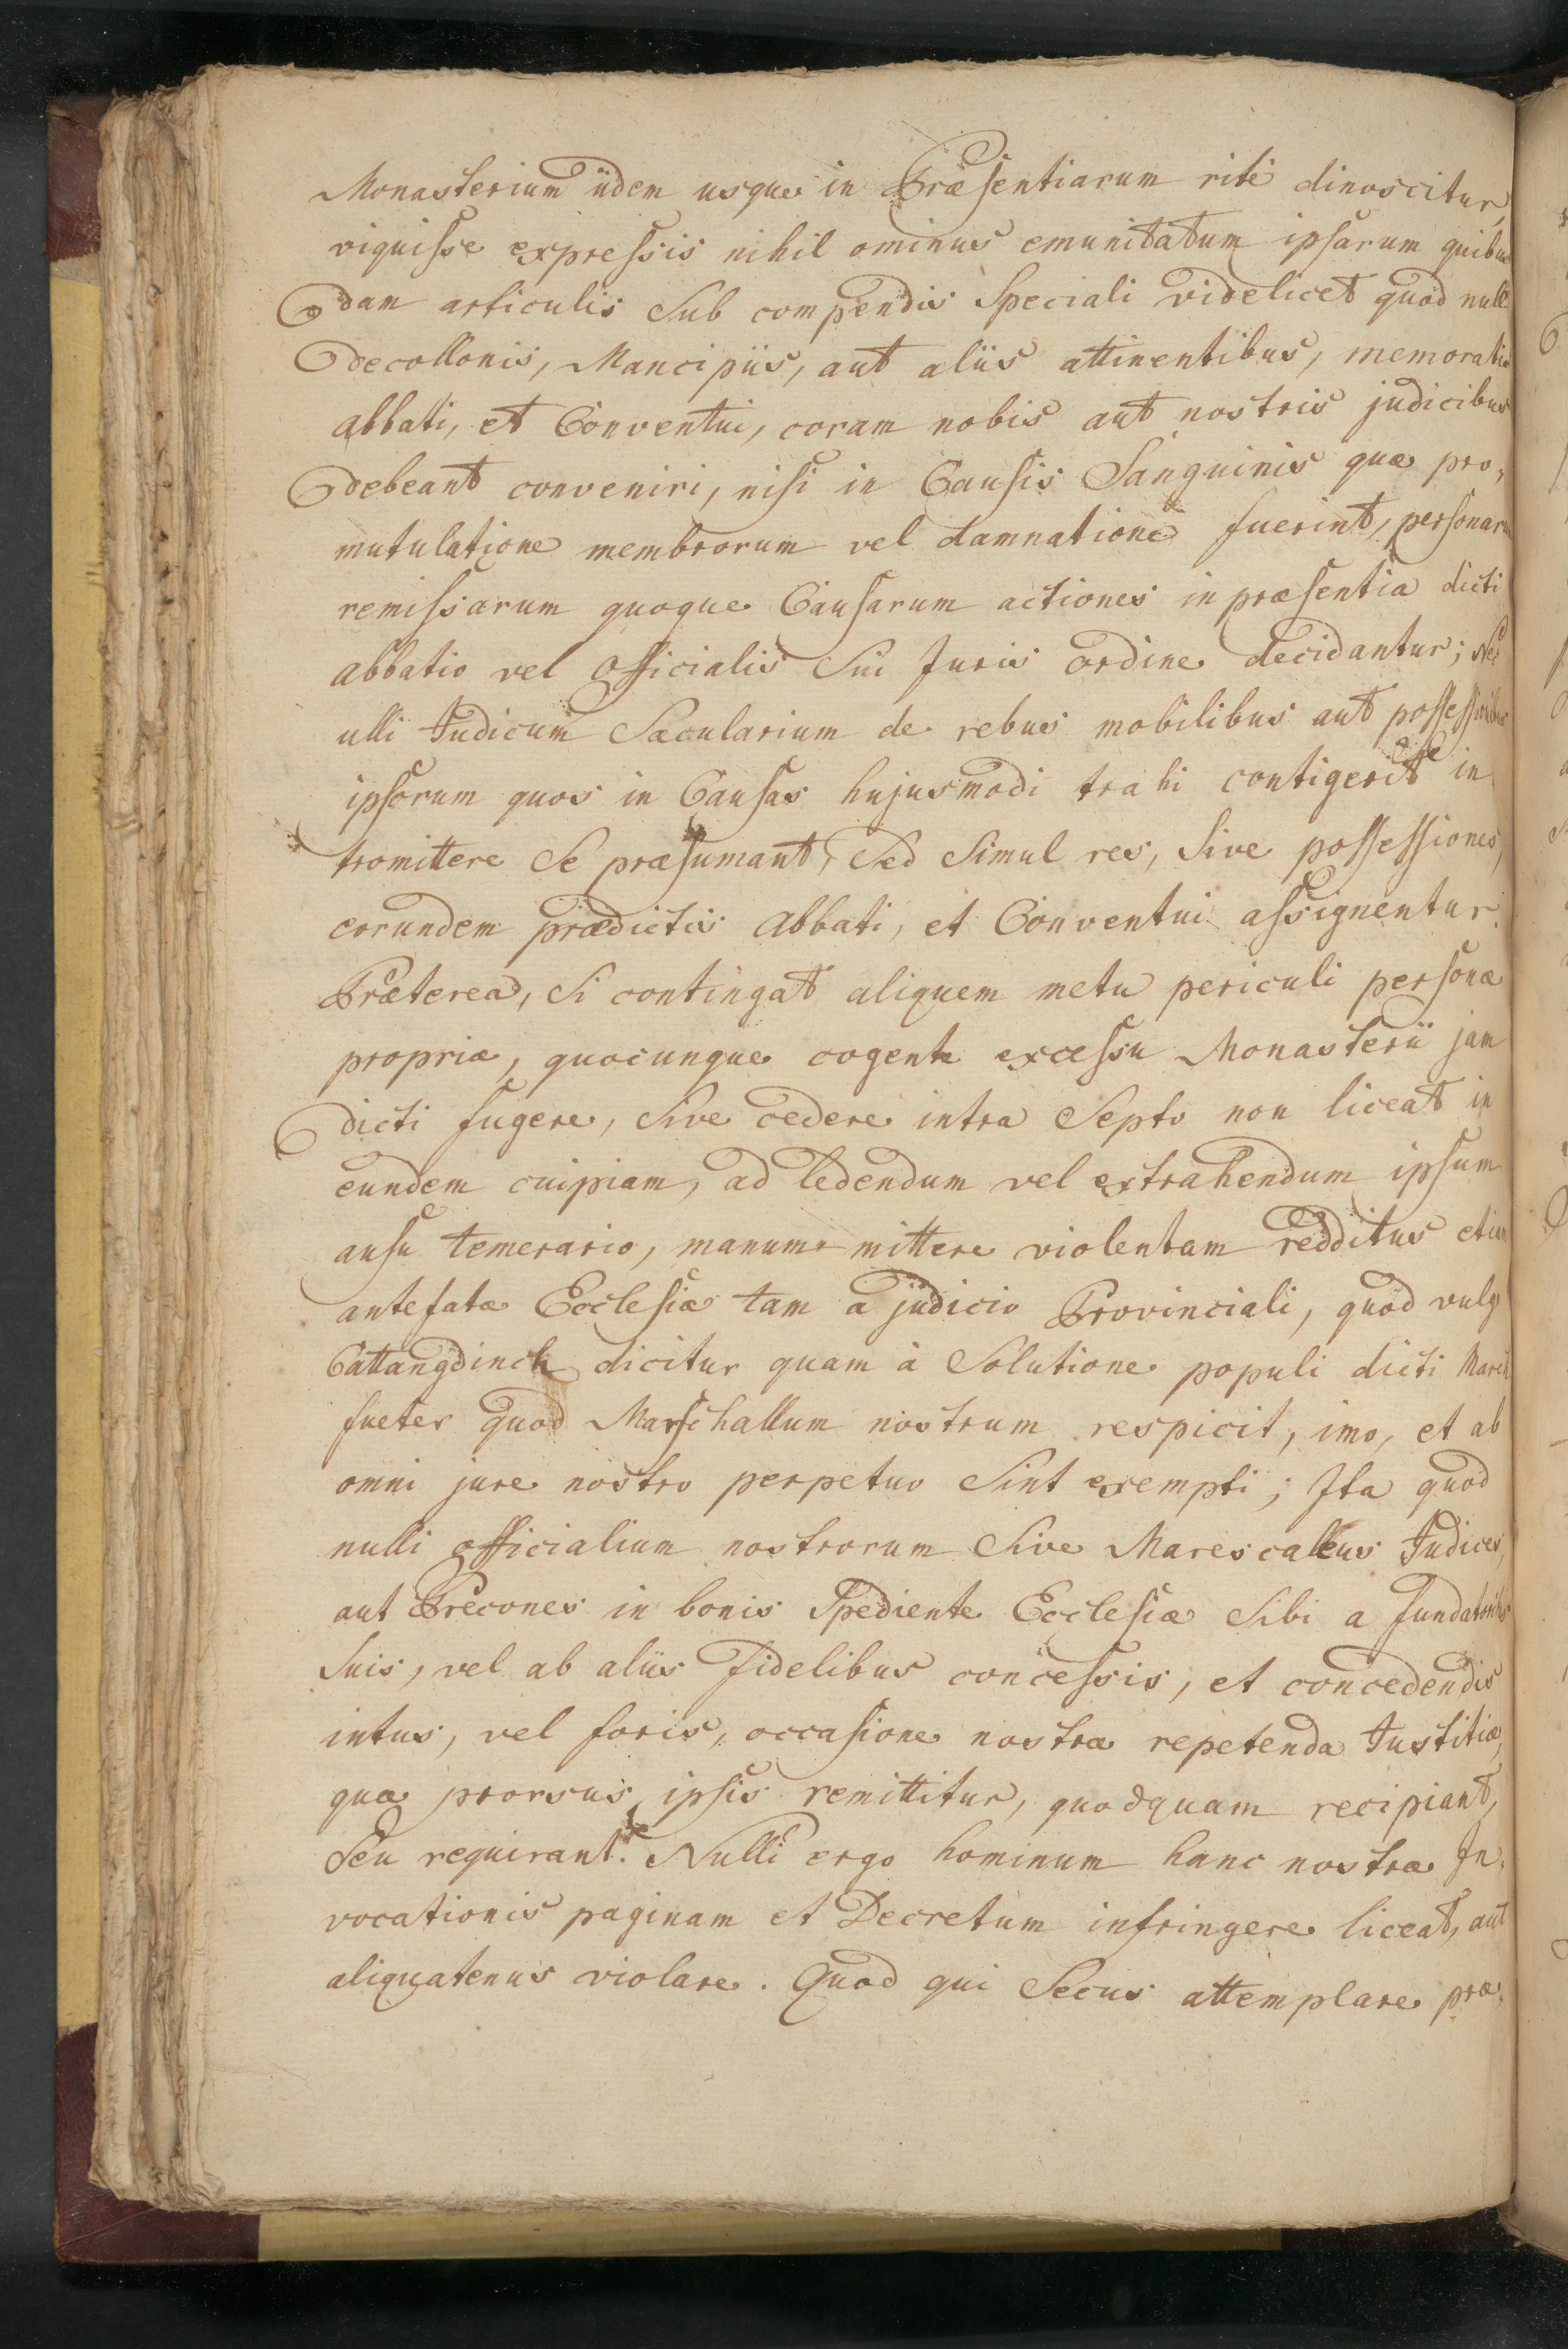 Monasterium iidem usque in Præsentiarum rité dinoscitur,
viguisse expressis nihil ominus emunitatum ipsarum quibus
dam articulis Sub compendis Speciali videlicet quod nulli
decollonis, Mancipiis, aut aliis attinentibus, memoratis
abbati, et Conventui, coram nobis aut nostris judicibus
debeant conveniri, nisi in Causis Sanguinis quæ pro,
mutulatione membrorum vel damnatione fuerint, personarum
remissarum quoque Causarum actiones in præsentia dicti
abbatio vel Officialis Sui Juris ordine decidantur; Nec
ulli Judicum Sæcularium de rebus mobilibus aut possessionibus
ipsorum quos in Causas hujusmodi trahi contigerit in
tromittere Se præsumant, Sed Simul res, Sive possessiones,
eorundem prædictis abbati, et Conventui assignentur.
Præterea, Si contingat aliquem metu periculi personæ
propriæ, quocunque cogente excessu Monasterii jam
dicti fugere, Sive cedere intra Septo non liceat in
eundem cuipiam, ad ledendum vel extrahendum ipsum
ausu temerario, manum mittere violentam redditus etiam
antefatæ Ecclesiæ tam a judicio Provinciali, quod vulgo
Cattangdinch dicitur quam à Solutione populi dicti March
fueter quod Marschallum nostrum respicit, imo, et ab
omni jure nostro perpetuo Sint exempti; Ita quod
nulli officialium nostrorum Sive Marescalcus Judices,
aut Precones in bonis Spediente Ecclesiæ Sibi a fundatoribus
Suis, vel ab aliis fidelibus concessis, et concedendis
intus, vel foris, occasione nostræ repetenda Justitiæ,
quæ prorsus ipsis remittitur, quodquam recipiant,
Seu requirant. Nulli ergo hominum hanc nostræ In,
vocationis paginam et Decretum infringere liceat, aut
aliquatenus violare. Quod qui Secus attemplare præ,